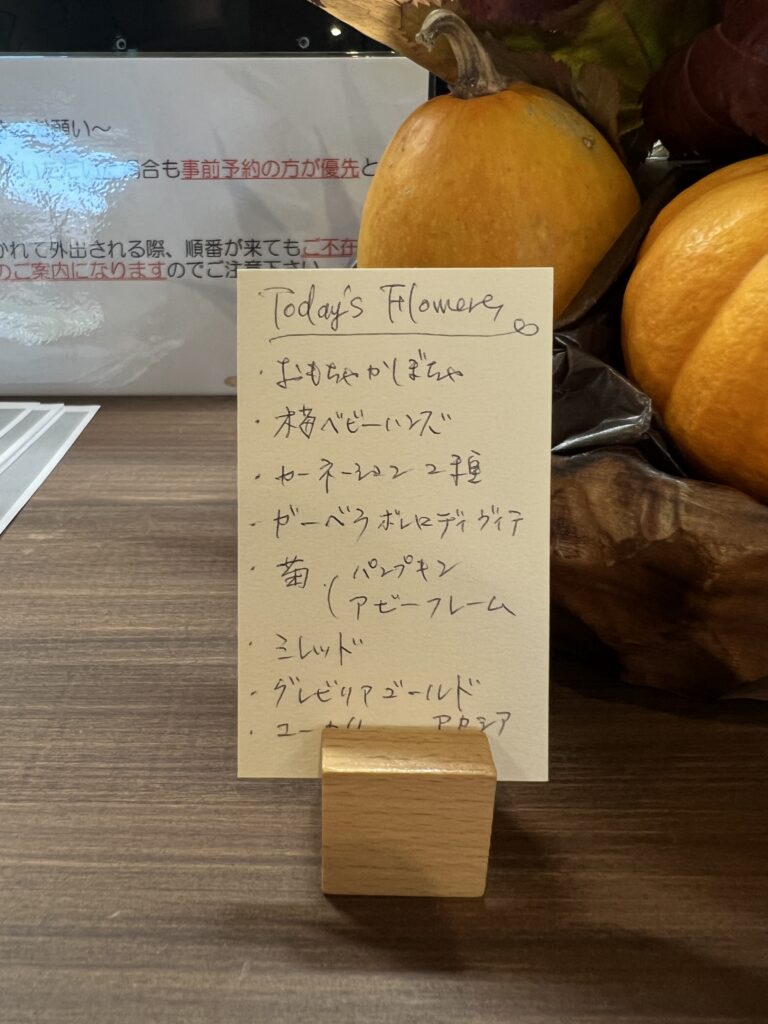 願い〜
合も事前予約の方が優先と
かれて外出される際、順番が来てもご不在
のご案内になりますのでご注意下さい
Today's Flowers
・おもちゃかぼちゃ
・梅ベビーハンズ
・カーネーション2種
・ガーベラボレロディヴィテ
・菊(パンプキン
アビーフレーム
・ミレッド
・グレビリアゴールド
・ユーカリ アカシア